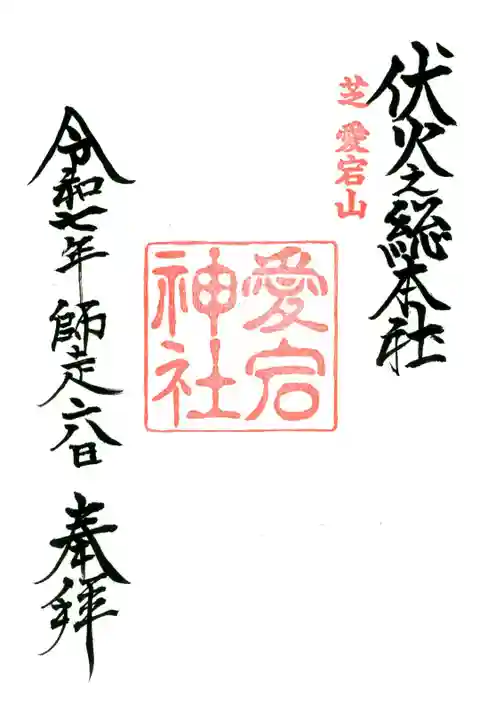 伏火之総本社
芝 愛宕山
愛宕
神社
令和七年 師走 六日 奉拝